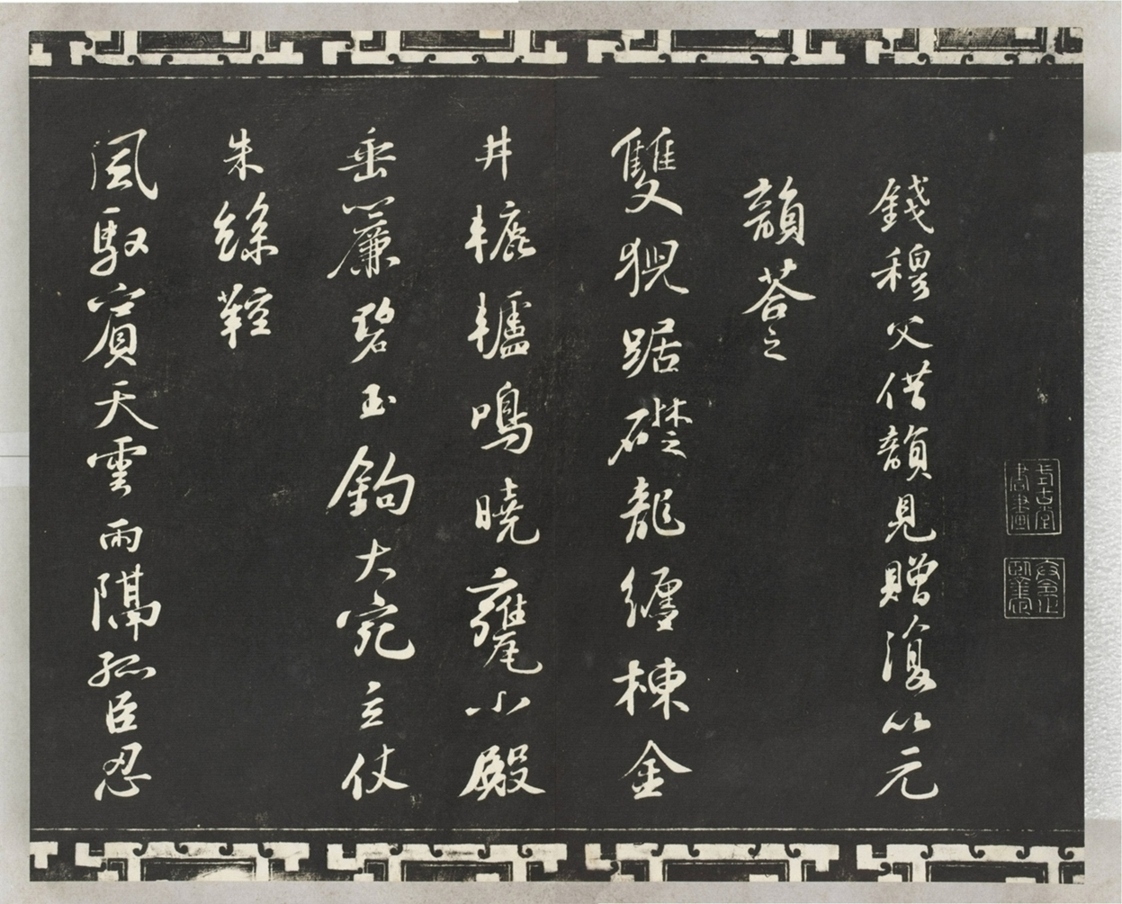 錢穆父借韻見贈復以元
韻荅之
雙猊踞礎龍纏棟金
井轆轤鳴曉甕小殿
垂簾碧玉鉤大宛立仗
朱絲鞚
風馭賓天雲雨隔孤臣忍